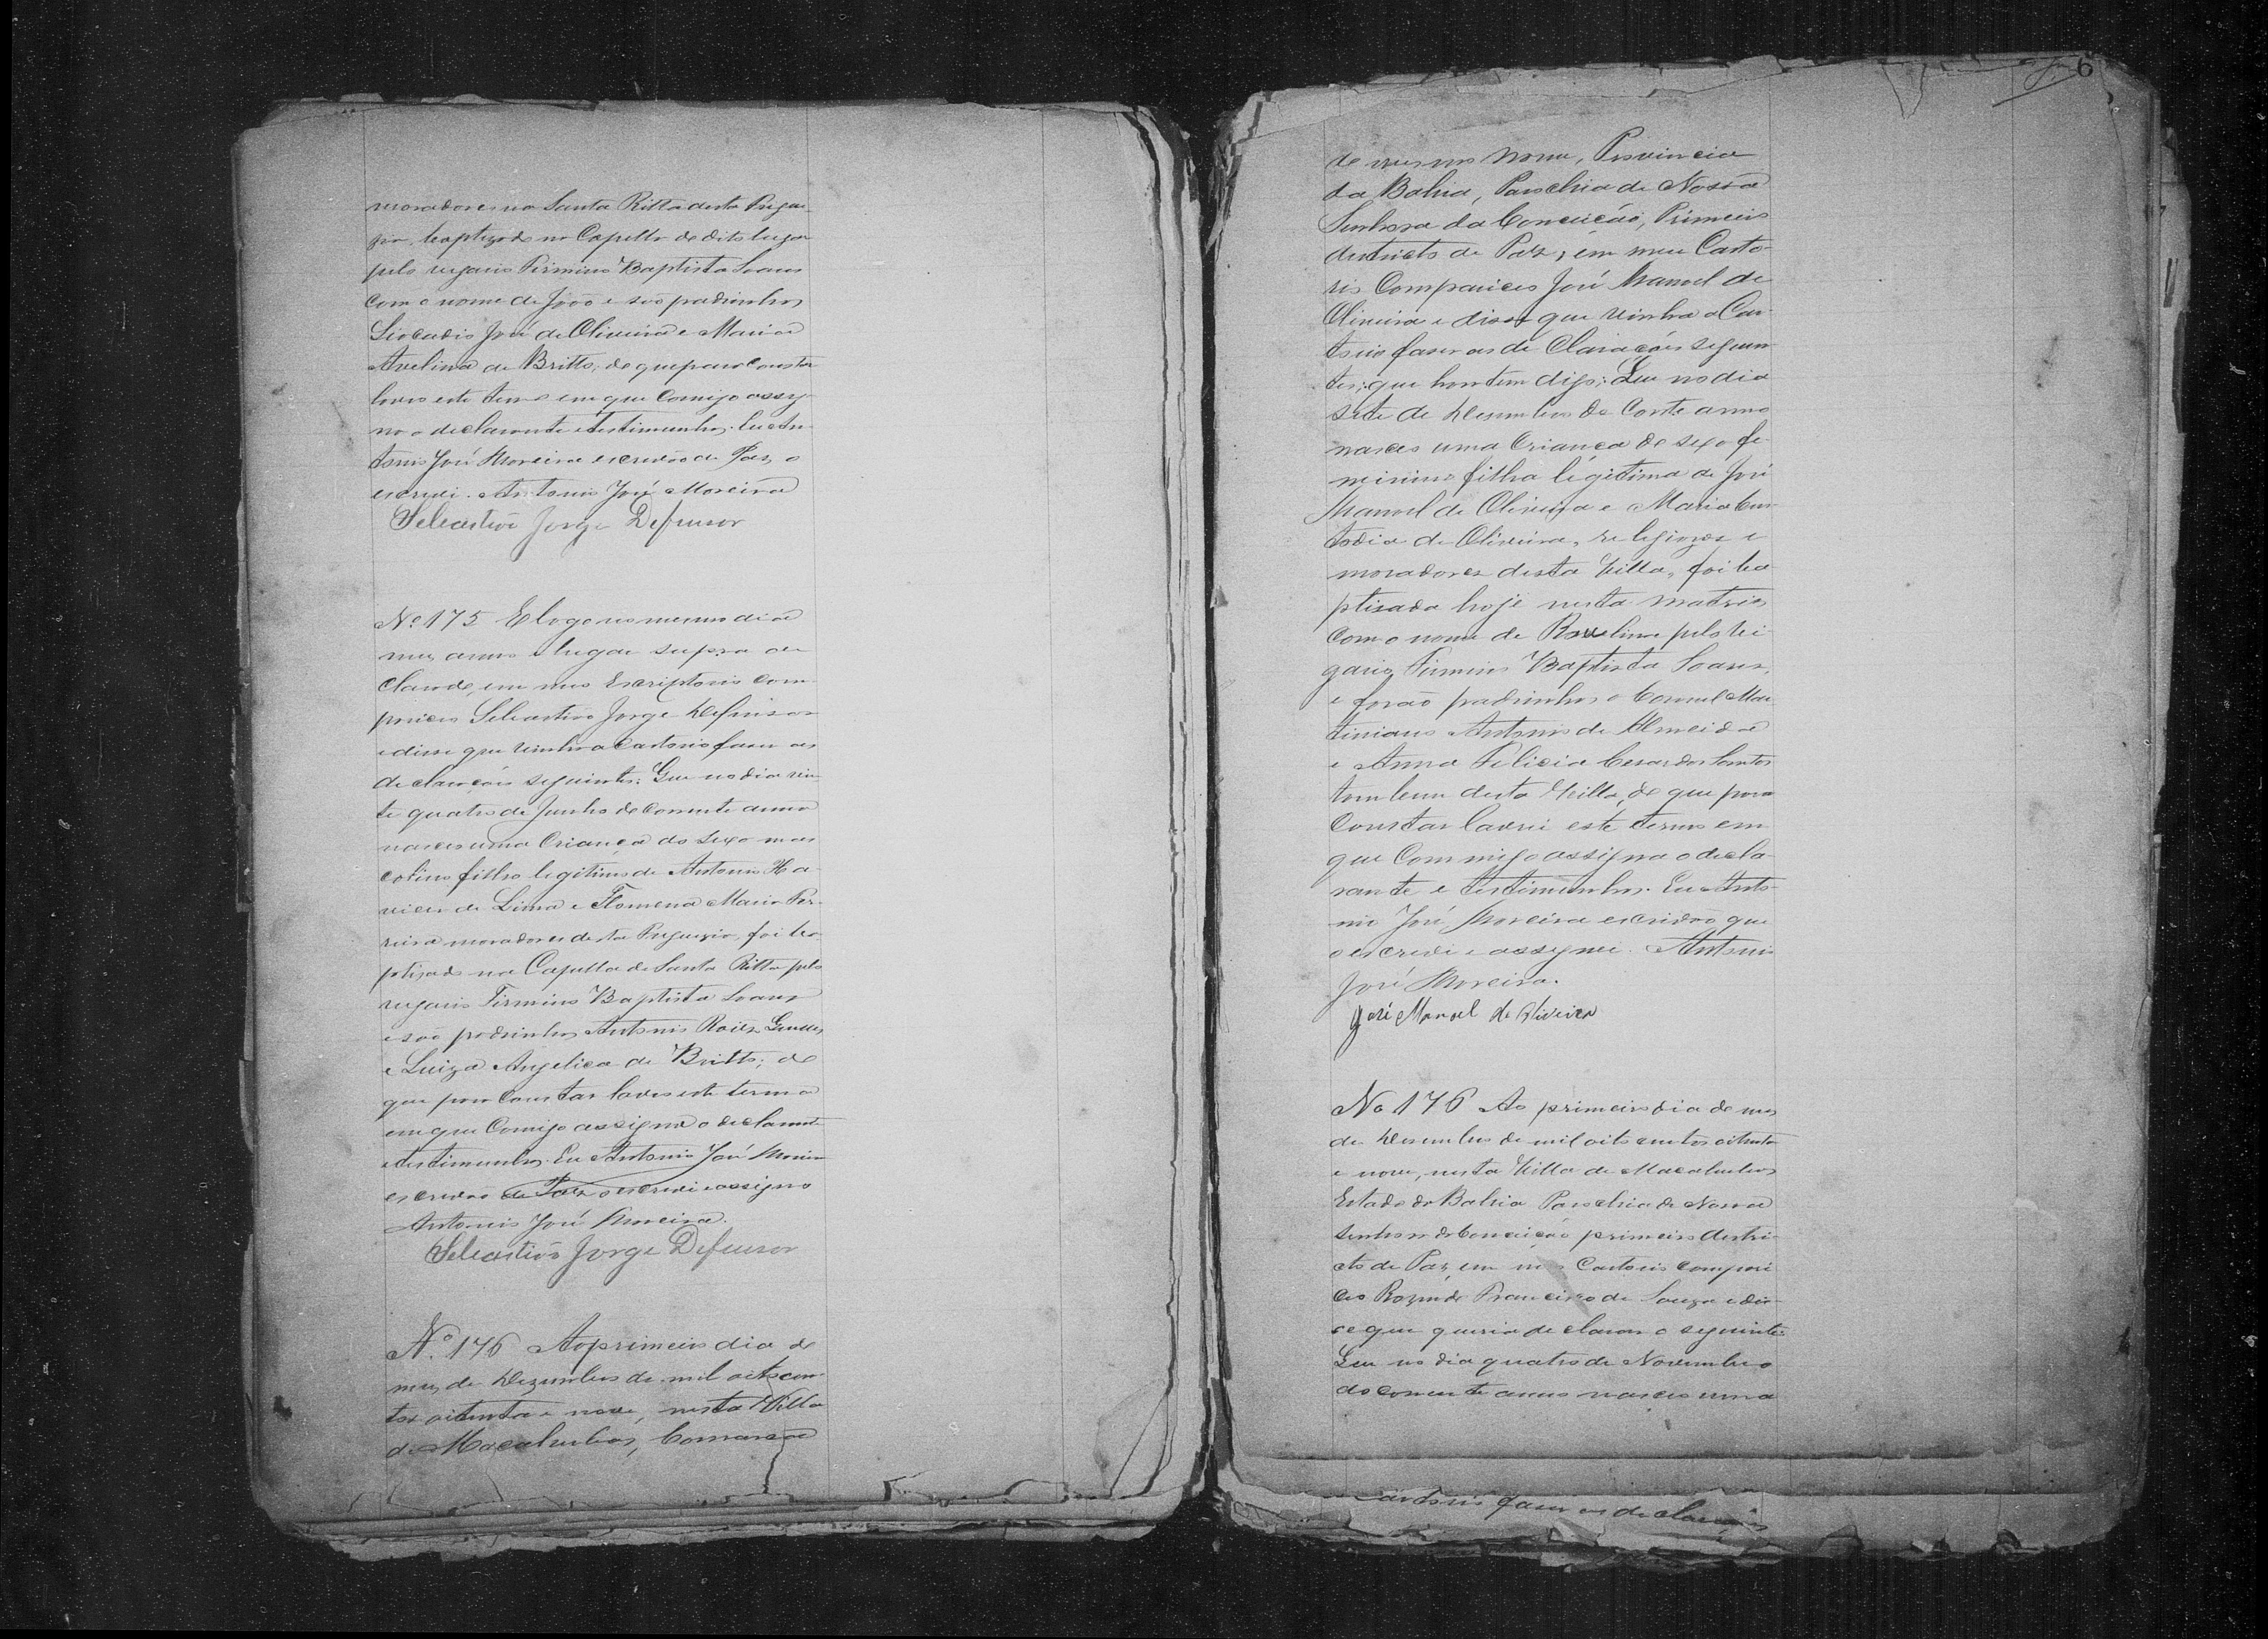 moradores na Santa Ritta desta Fregue-
zia, baptizado na Capella de dito lugar
pelo vigario Firmino Baptista Soares
com o nome de João e são padrinhos
Liocadio José de Oliveira e Maria
Avelina de Britto, do que para constar
lavro este termo em que Comigo assig-
na o declarante e testimunhas. Eu An-
tonio José Moreira escrivão de Paz, o
escrevi. Antonio José Moreira
Sebastião Jorge Defensor
Nº 175 E logo no mesmo dia
mez, anno e lugar supra de
clarado, em meu Escriptorio com-
pareceu Sebastião Jorge Defensor
e disse que vinha a Cartorio faser as
declarações seguintes: Que no dia vin
te quatro de Junho do Corrente anno
nasceu uma Criança do sexo mas
colino filho legitimo de Antonio Xa
vier de Lima e Flomena Maria Per-
reira moradores desta Freguezia, foi ba-
ptisado na Capella de Santa Ritta pelo
vigario Firmino Baptista Soares
e são padrinhos Antonio
e Luiza Angelica de Britto; do
que para Constar lavro este termo
em que Comigo assigna o declarante
e testimunhas. Eu Antonio José Moreira
escrivão de Paz o escrevi e assigno
Antonio José Moreira.
Sebastião Jorge Defensor
Nº 176 Ao primeiro dia do
mez de Dezembro de mil oitocen-
tos oitenta e nove, nesta Villa
de Macahubas, Comarca
6
de mesmo nome, Provincia
da Bahia, Parochia de Nossa
Senhora da Conceição, Primeiro
destricto de Paz, em meu Carto-
rio Compareceo José Manoel de
Oliveira e disse que vinha a Car-
torio faser as de Claraçoes seguin
tes; que hontem digo; Que no dia
sete de Desembro do Corte anno
nasceo uma Criança do sexo fe
minino filha légitima de José
Manoel de Oliveira e Maria Cus-
todia de Oliveira, religiozos e
moradores desta Villa, foi ba
ptisada hoje nesta matriz
com o nome de pelo vi
gario Firmino Baptista Soares,
e forão padrinhos o Coronel Mar
tiniano Antonio de Almeida
e Anna Felicia Cesar dos Santos
tambem desta Villa, do que para
Constar lavrei este termo em
que Commigo assigna o decla-
rante e testimunhas. Eu Anto-
nio José Moreira escrivão que
o escrevi e assignei. Antonio
José Moreira.
José Manoel de Oliveira
No 176 Ao primeiro dia do mes
de Desembro de mil oito centos oitenta
e nove, nesta Villa de Macahubas
Estado da Bahia Parochia de Nossa
Senhora da Conceição primeiro destri-
cto de Paz, em meu Cartorio compare
ceo Rozendo Francisco de Souza e dis-
se que queria declarar o seguinte:
Que no dia quatro de Novembro
do corrente anno nasceo uma
Cartorio faser as declarações